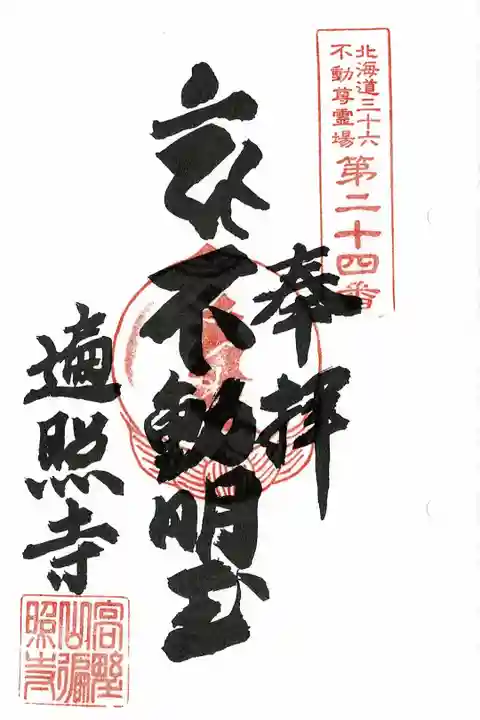 北海道三十六
不動尊霊場
第二十四番
奉拝
不動明王
遍照寺
高野
山遍
照寺